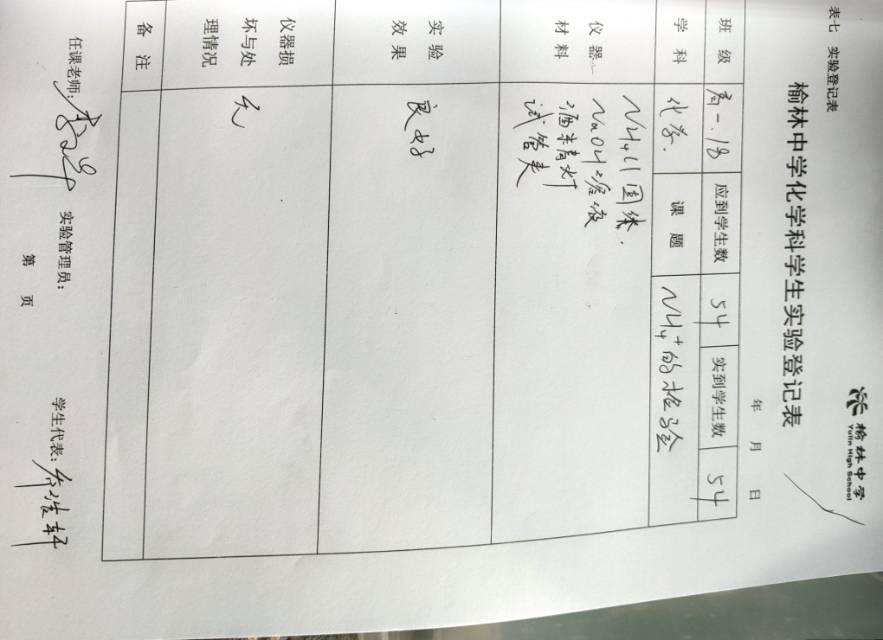 表七 实验登记表
榆林中学
Yulin High School
榆林中学化学科学生实验登记表
年 月 日
班级 高一.18 应到学生数 54 实到学生数 54
学科 化学. 课题 NH4+的检验
仪器 材料
NH4Cl固体.
NaOH溶液
酒精灯
试管夹
实验 效果 良好
仪器损 坏与处 理情况 无
备注
任课老师: 实验管理员: 学生代表:
第 页